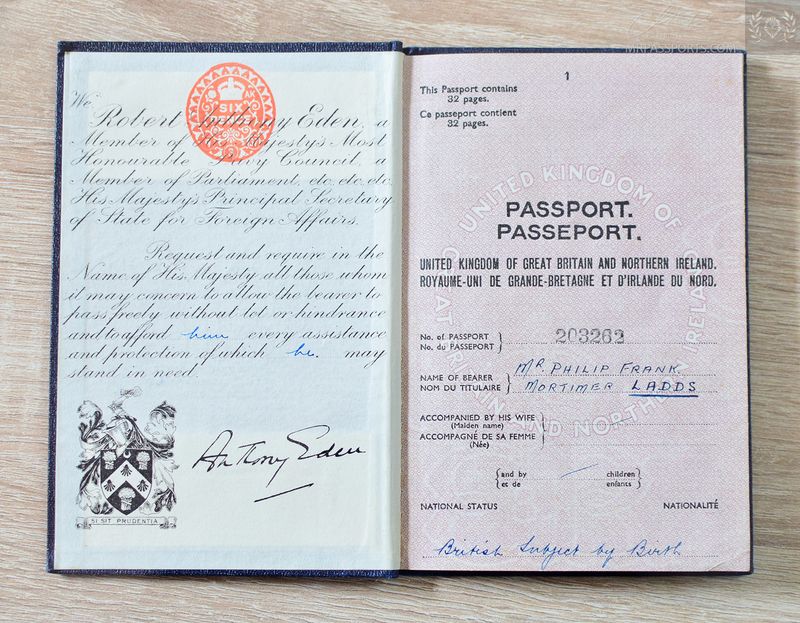 MRPASSPORTS.COM
We,
Robert Anthony Eden, a
Member of His Majesty's Most
Honourable Privy Council, a
Member of Parliament, etc, etc, etc,
His Majesty's Principal Secretary
of State for Foreign Affairs.
Request and require in the
Name of His Majesty all those whom
it may concern to allow the bearer to
pass freely without let or hindrance
and to afford him every assistance
and protection of which he may
stand in need.
SIX
Anthony Eden
SI SIT PRUDENTIA
1
This Passport contains
32 pages.
Ce passeport contient
32 pages.
UNITED KINGDOM OF
PASSPORT.
PASSEPORT.
UNITED KINGDOM OF GREAT BRITAIN AND NORTHERN IRELAND.
ROYAUME-UNI DE GRANDE-BRETAGNE ET D'IRLANDE DU NORD.
No. of PASSPORT
No. du PASSEPORT
203262
NAME OF BEARER
NOM DU TITULAIRE
Mr. PHILIP FRANK
MORTIMER LADDS
ACCOMPANIED BY HIS WIFE
(Maiden name)
ACCOMPAGNÉ DE SA FEMME
(Née)
and by children
et de enfants
NATIONAL STATUS NATIONALITÉ
British Subject by Birth